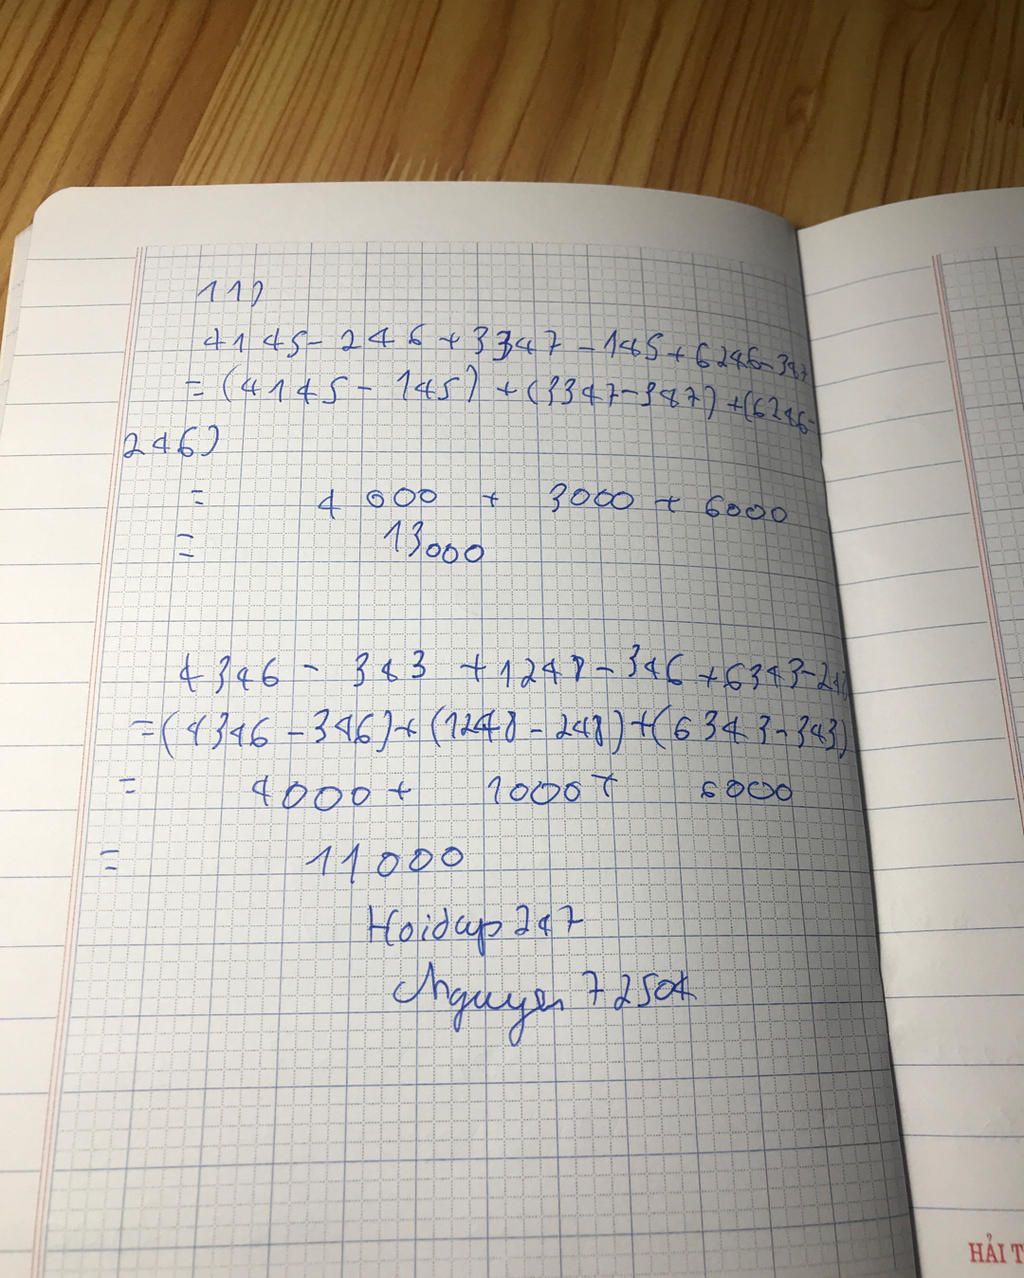 11)
4145 - 246 + 3347 - 145 + 6246 - 347
= (4145 - 145) + (3347 - 347) + (6246 -
246)
= 4000 + 3000 + 6000
= 13000
4346 - 343 + 1248 - 346 + 6343 - 248
= (4346 - 346) + (1248 - 248) + (6343 - 343)
= 4000 + 1000 + 6000
= 11000
Hoidap 247
Nguyen 7250k
HẢI T